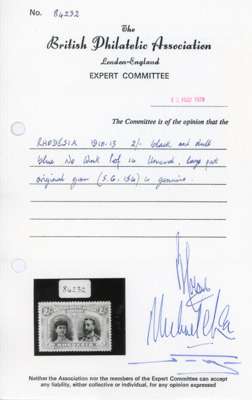 No. 84232
The
British Philatelic Association
London-England
EXPERT COMMITTEE
The Committee is of the opinion that the
RHODESIA 1910-13 2/- black and dull
blue No Wmk Perf 14 Unused, large part
original gum (S.G. 154) is genuine.
84232
RHODESIA
Neither the Association nor the members of the Expert Committee can accept
any liability, either collective or individual, for any opinion expressed